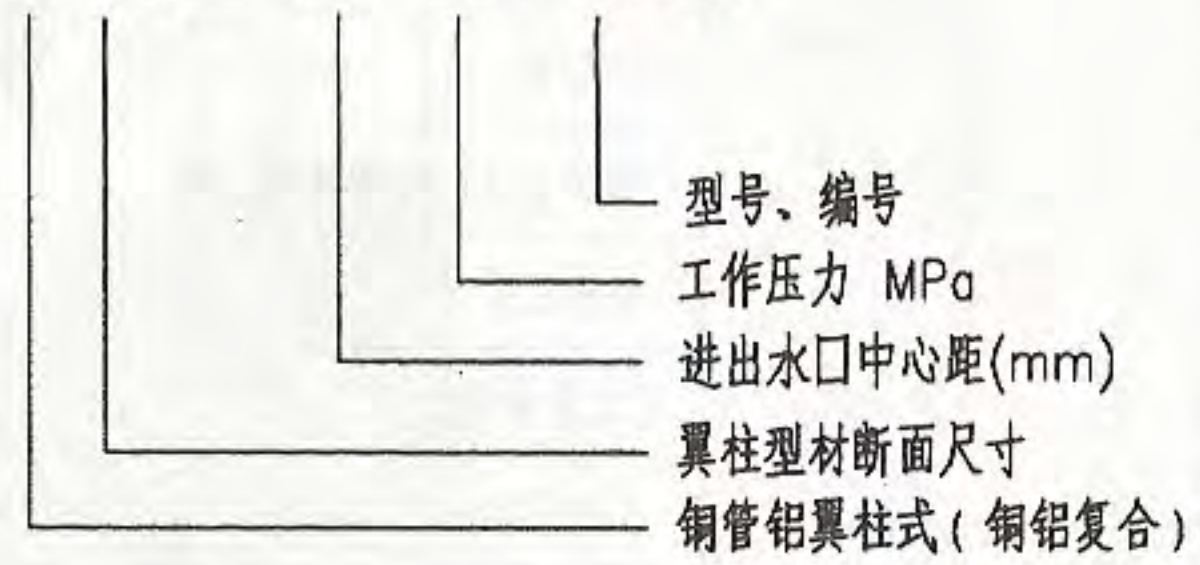 型号、编号
工作压力 MPa
进出水口中心距(mm)
翼柱型材断面尺寸
铜管铝翼柱式(铜铝复合)